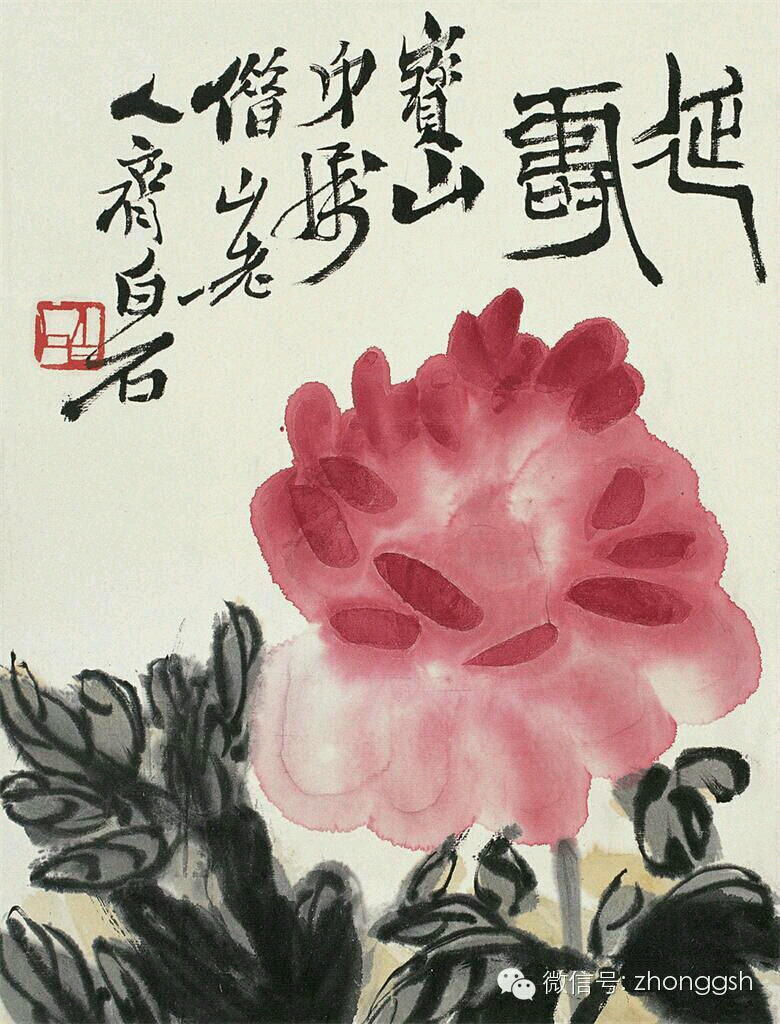 延壽
寶山
印屬
借山老
人齊白石
微信号: zhonggsh